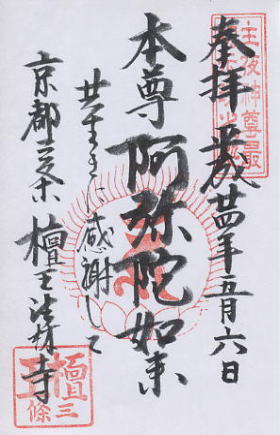 主夜神尊最
奉拝 平成廿四年五月六日
本尊 阿弥陀如来
共生きに感謝して
京都三条 檀王法林寺
檀王
三條